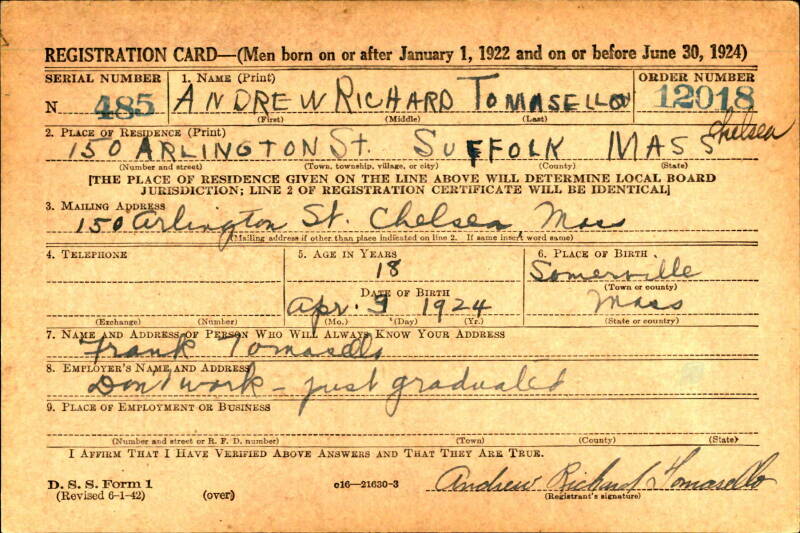 REGISTRATION CARD—(Men born on or after January 1, 1922 and on or before June 30, 1924)
SERIAL NUMBER 1. NAME (Print) ORDER NUMBER
N 485 ANDREW RICHARD TOMASELLO 12018
(First) (Middle) (Last)
2. PLACE OF RESIDENCE (Print)
150 ARLINGTON St. SUFFOLK MASS Chelsea
(Number and street) (Town, township, village, or city) (County) (State)
[THE PLACE OF RESIDENCE GIVEN ON THE LINE ABOVE WILL DETERMINE LOCAL BOARD
JURISDICTION; LINE 2 OF REGISTRATION CERTIFICATE WILL BE IDENTICAL]
3. MAILING ADDRESS
150 Arlington St. Chelsea, Mass
[Mailing address if other than place indicated on line 2. If same insert word same]
4. TELEPHONE 5. AGE IN YEARS 6. PLACE OF BIRTH
18 Somerville
(Town or county)
DATE OF BIRTH
Apr. 3 1924 Mass
(Exchange) (Number) (Mo.) (Day) (Yr.) (State or country)
7. NAME AND ADDRESS OF PERSON WHO WILL ALWAYS KNOW YOUR ADDRESS
Frank Tomasello
8. EMPLOYER'S NAME AND ADDRESS
Dont work - just graduated
9. PLACE OF EMPLOYMENT OR BUSINESS
(Number and street or R. F. D. number) (Town) (County) (State)
I AFFIRM THAT I HAVE VERIFIED ABOVE ANSWERS AND THAT THEY ARE TRUE.
D. S. S. Form 1
(Revised 6-1-42) (over) c16—21630-3 Andrew Richard Tomasello
(Registrant's signature)